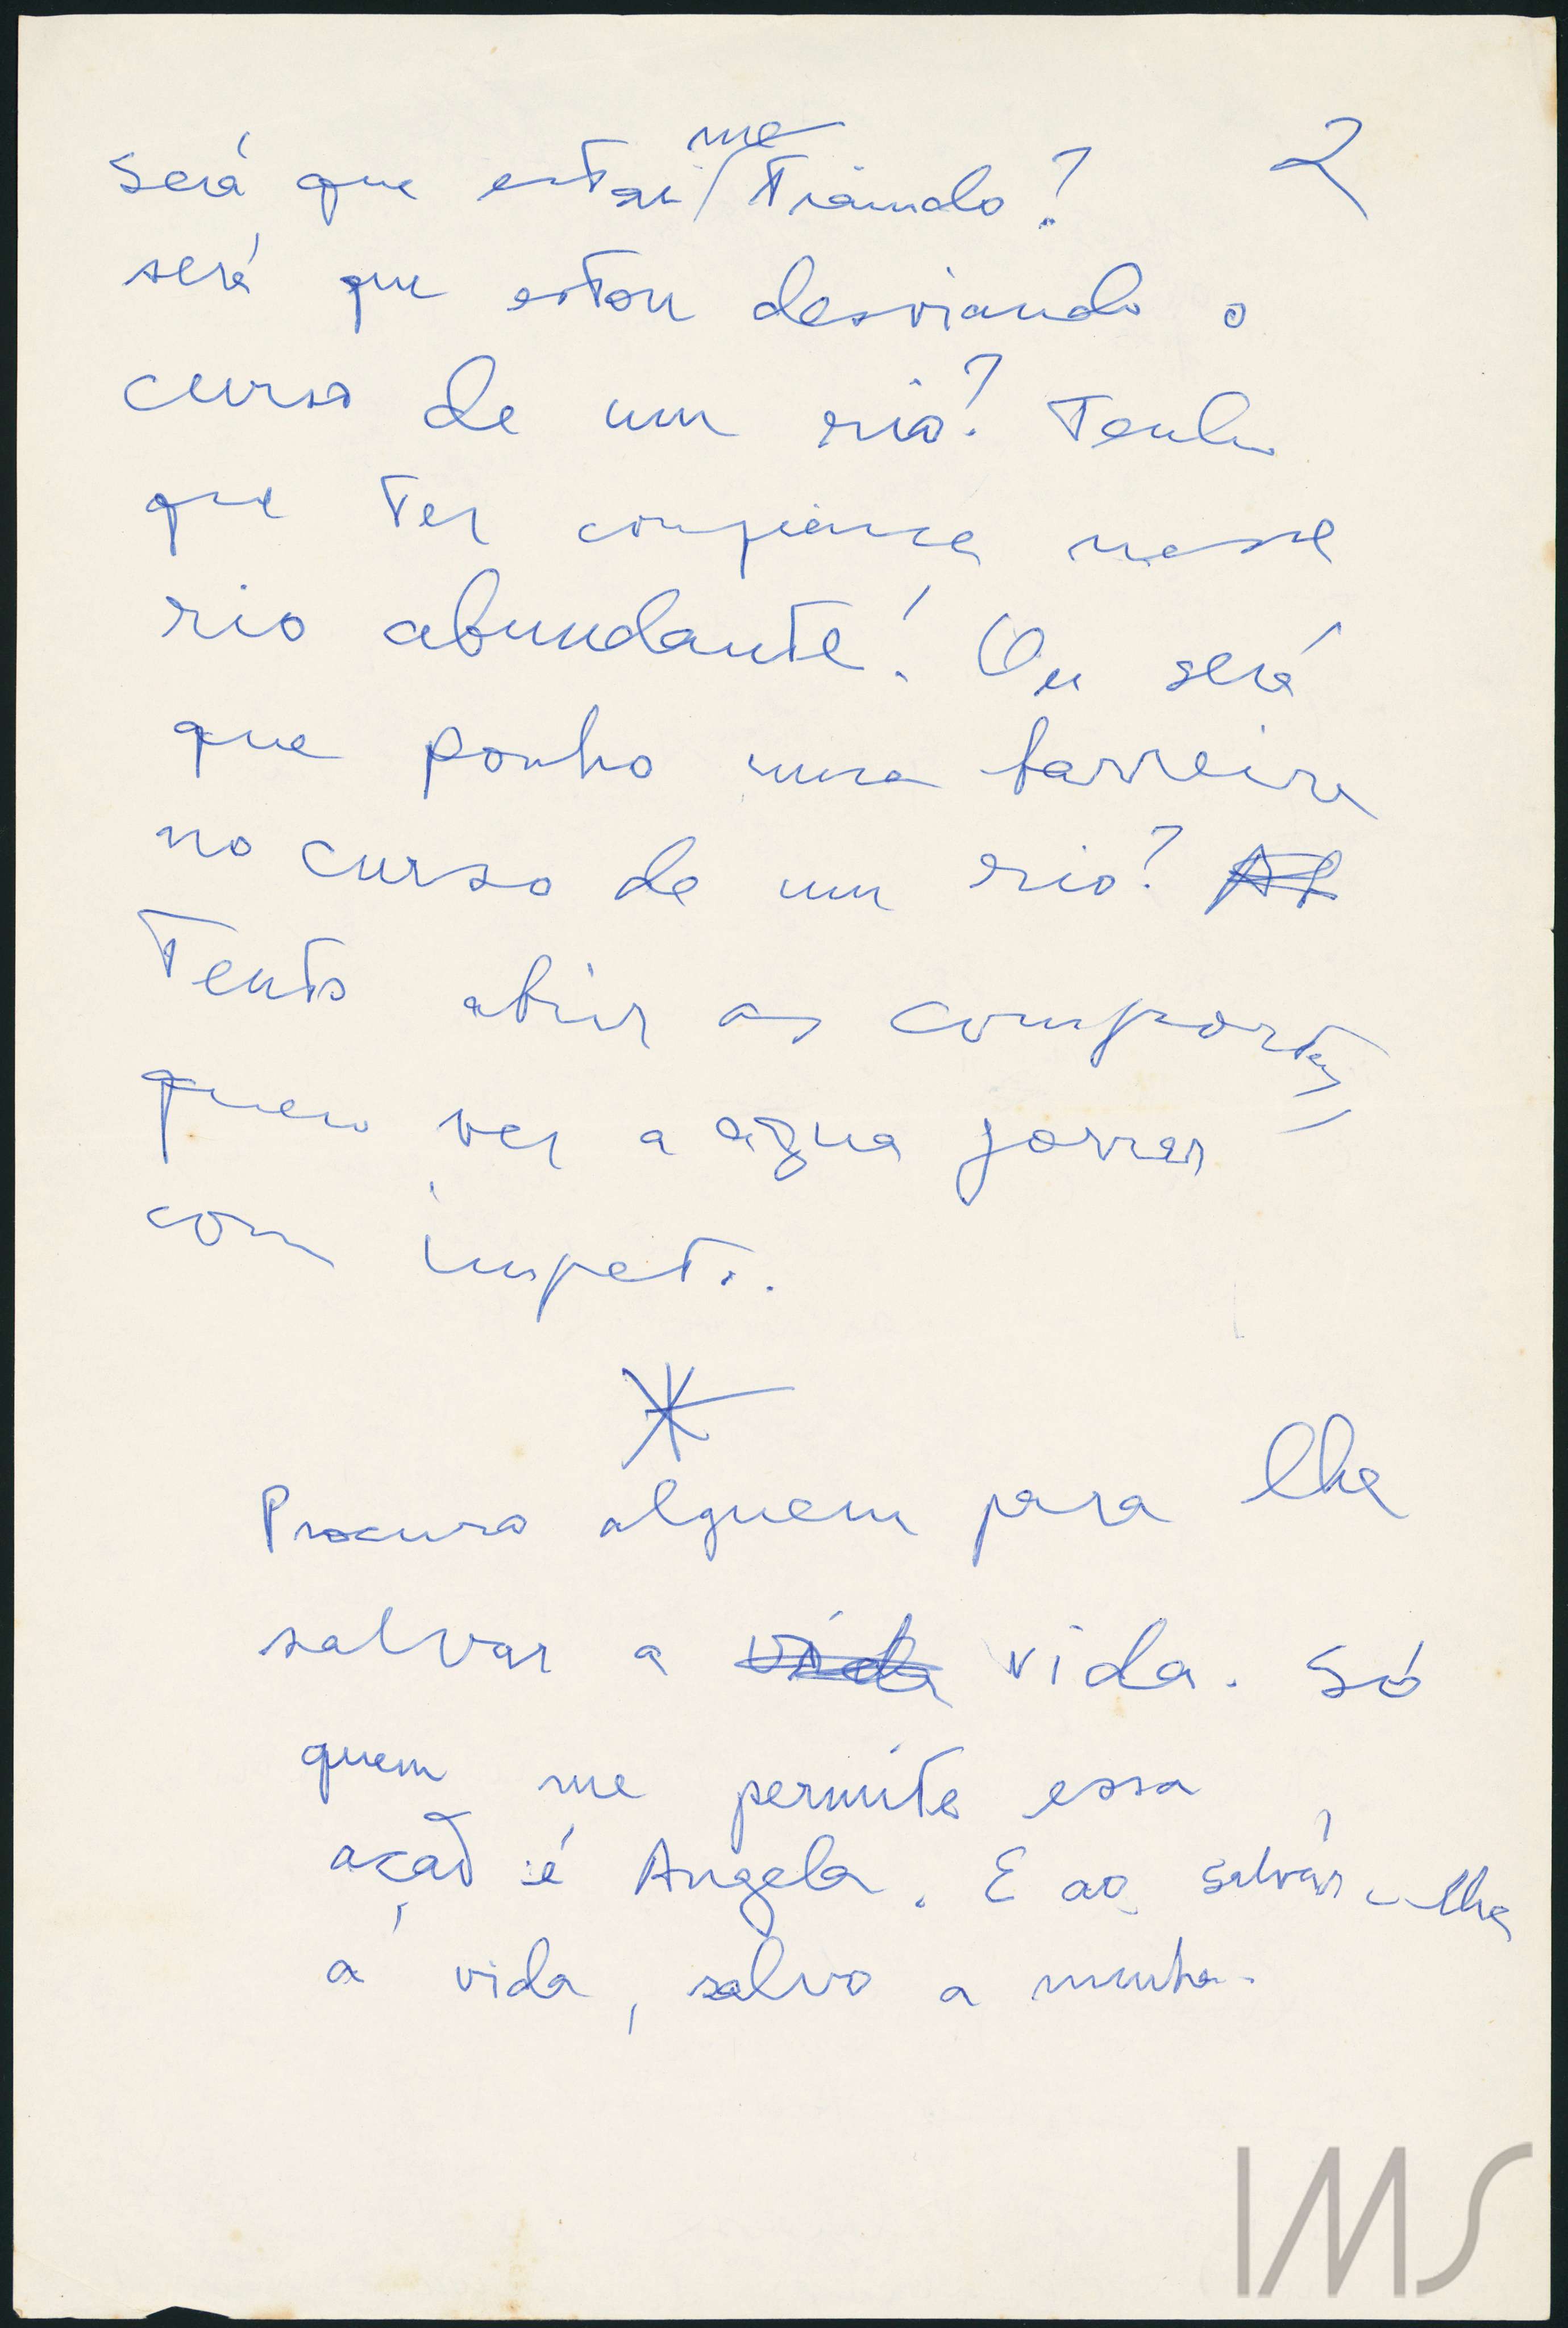 2
me
será que estou / traindo?
será que estou desviando o
curso de um rio? Tenho
que ter confiança nesse
rio abundante! Ou será
que ponho uma barreira
no curso de um rio?
Tento abrir as comportas,
quero ver a agua jorrar
com impeto.
*
Procuro alguem para lhe
salvar a vida vida. Só
quem me permite essa
ação é Angela. E ao salvár-lhe
a vida, salvo a minha.
IMS